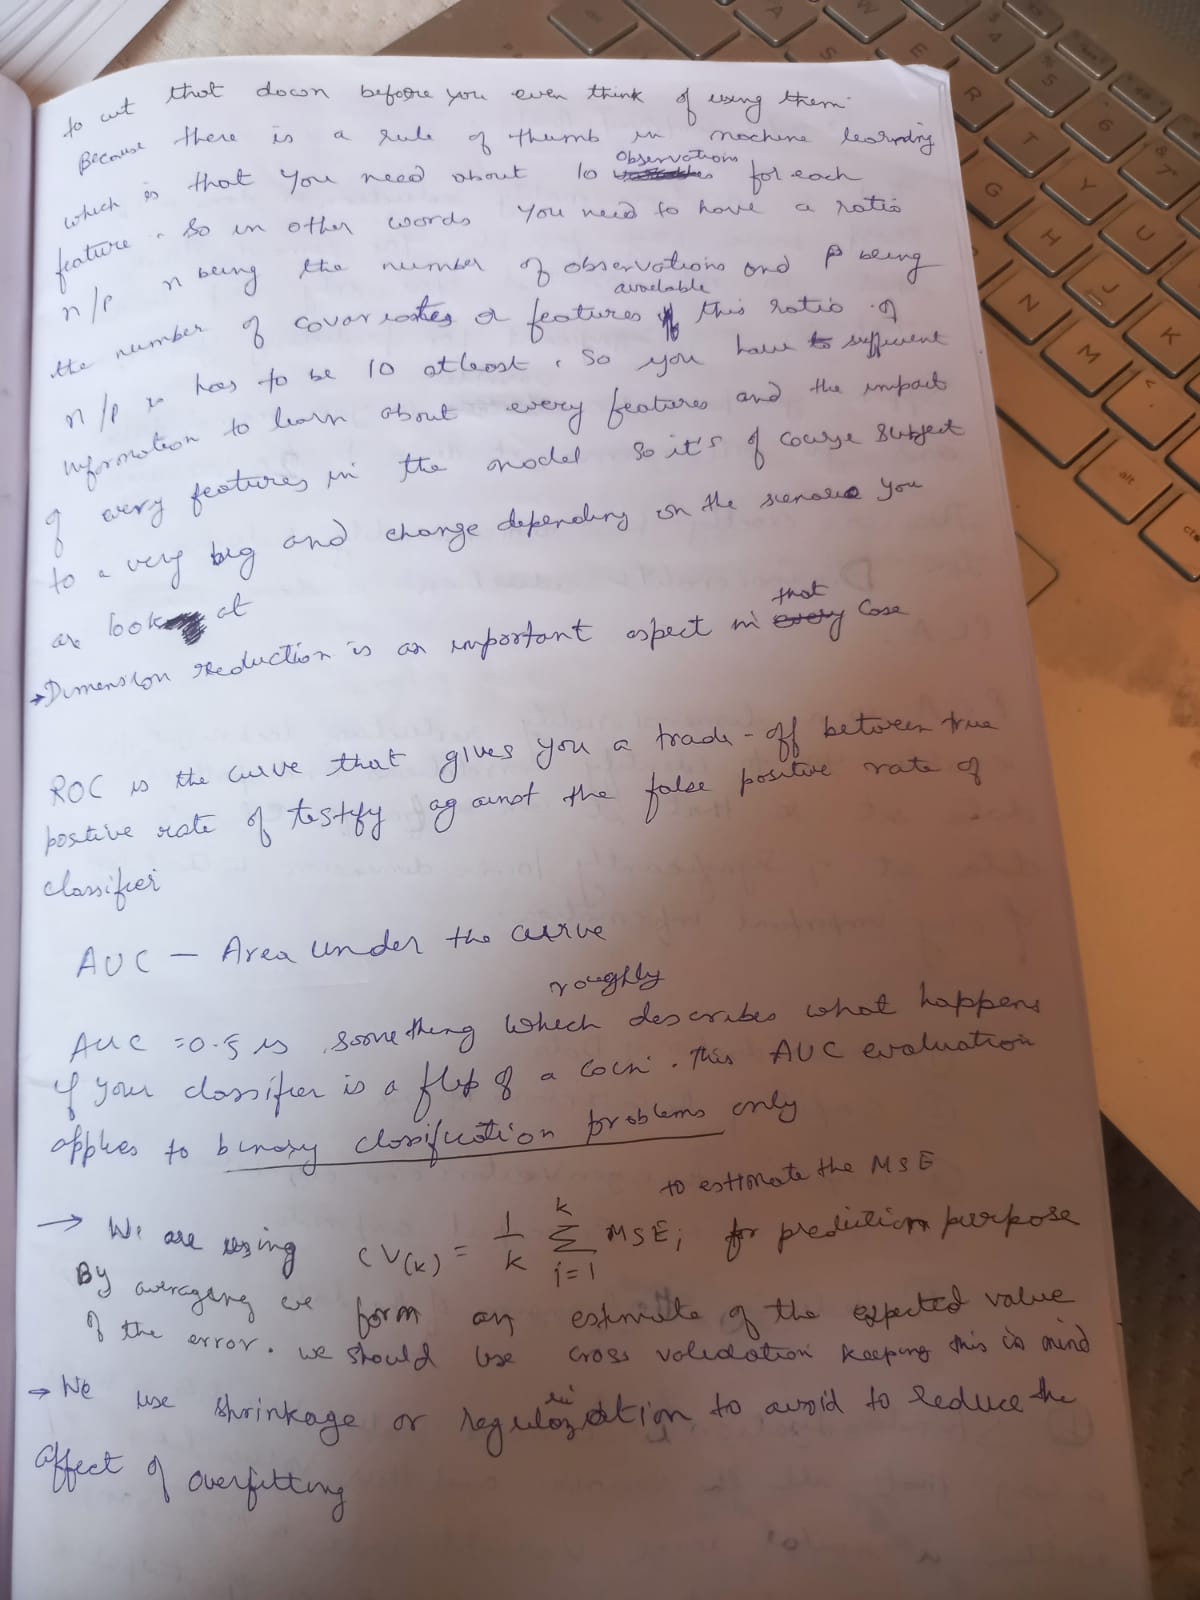 to cut that down before you even think of using them.
Because there is a rule of thumb in machine learning
which is that you need about 10 observations for each
feature. So in other words you need to have a ratio
n/p n being the number of observations and p being
the number of covariates or features available this ratio of
n/p has to be 10 atleast. So you have to sufficient
information to learn about every features and the impact
of every features in the model so it's of course subject
to a very big and change depending on the scenario you
are look at
→ Dimension reduction is an important aspect in that case
ROC is the curve that gives you a trade-off between true
positive rate of testify against the false positive rate of
classifier
AUC — Area Under the curve
AUC = 0.5 is something which roughly describes what happens
if your classifier is a flip of a coin. This AUC evaluation
applies to binary classification problems only
→ We are using CV(k) = 1/k ∑ k i=1 MSEi to estimate the MSE for prediction purpose
By averaging we form an estimate of the expected value
of the error. we should use cross validation keeping this in mind
→ We use shrinkage or regularization to avoid to reduce the
affect of overfitting